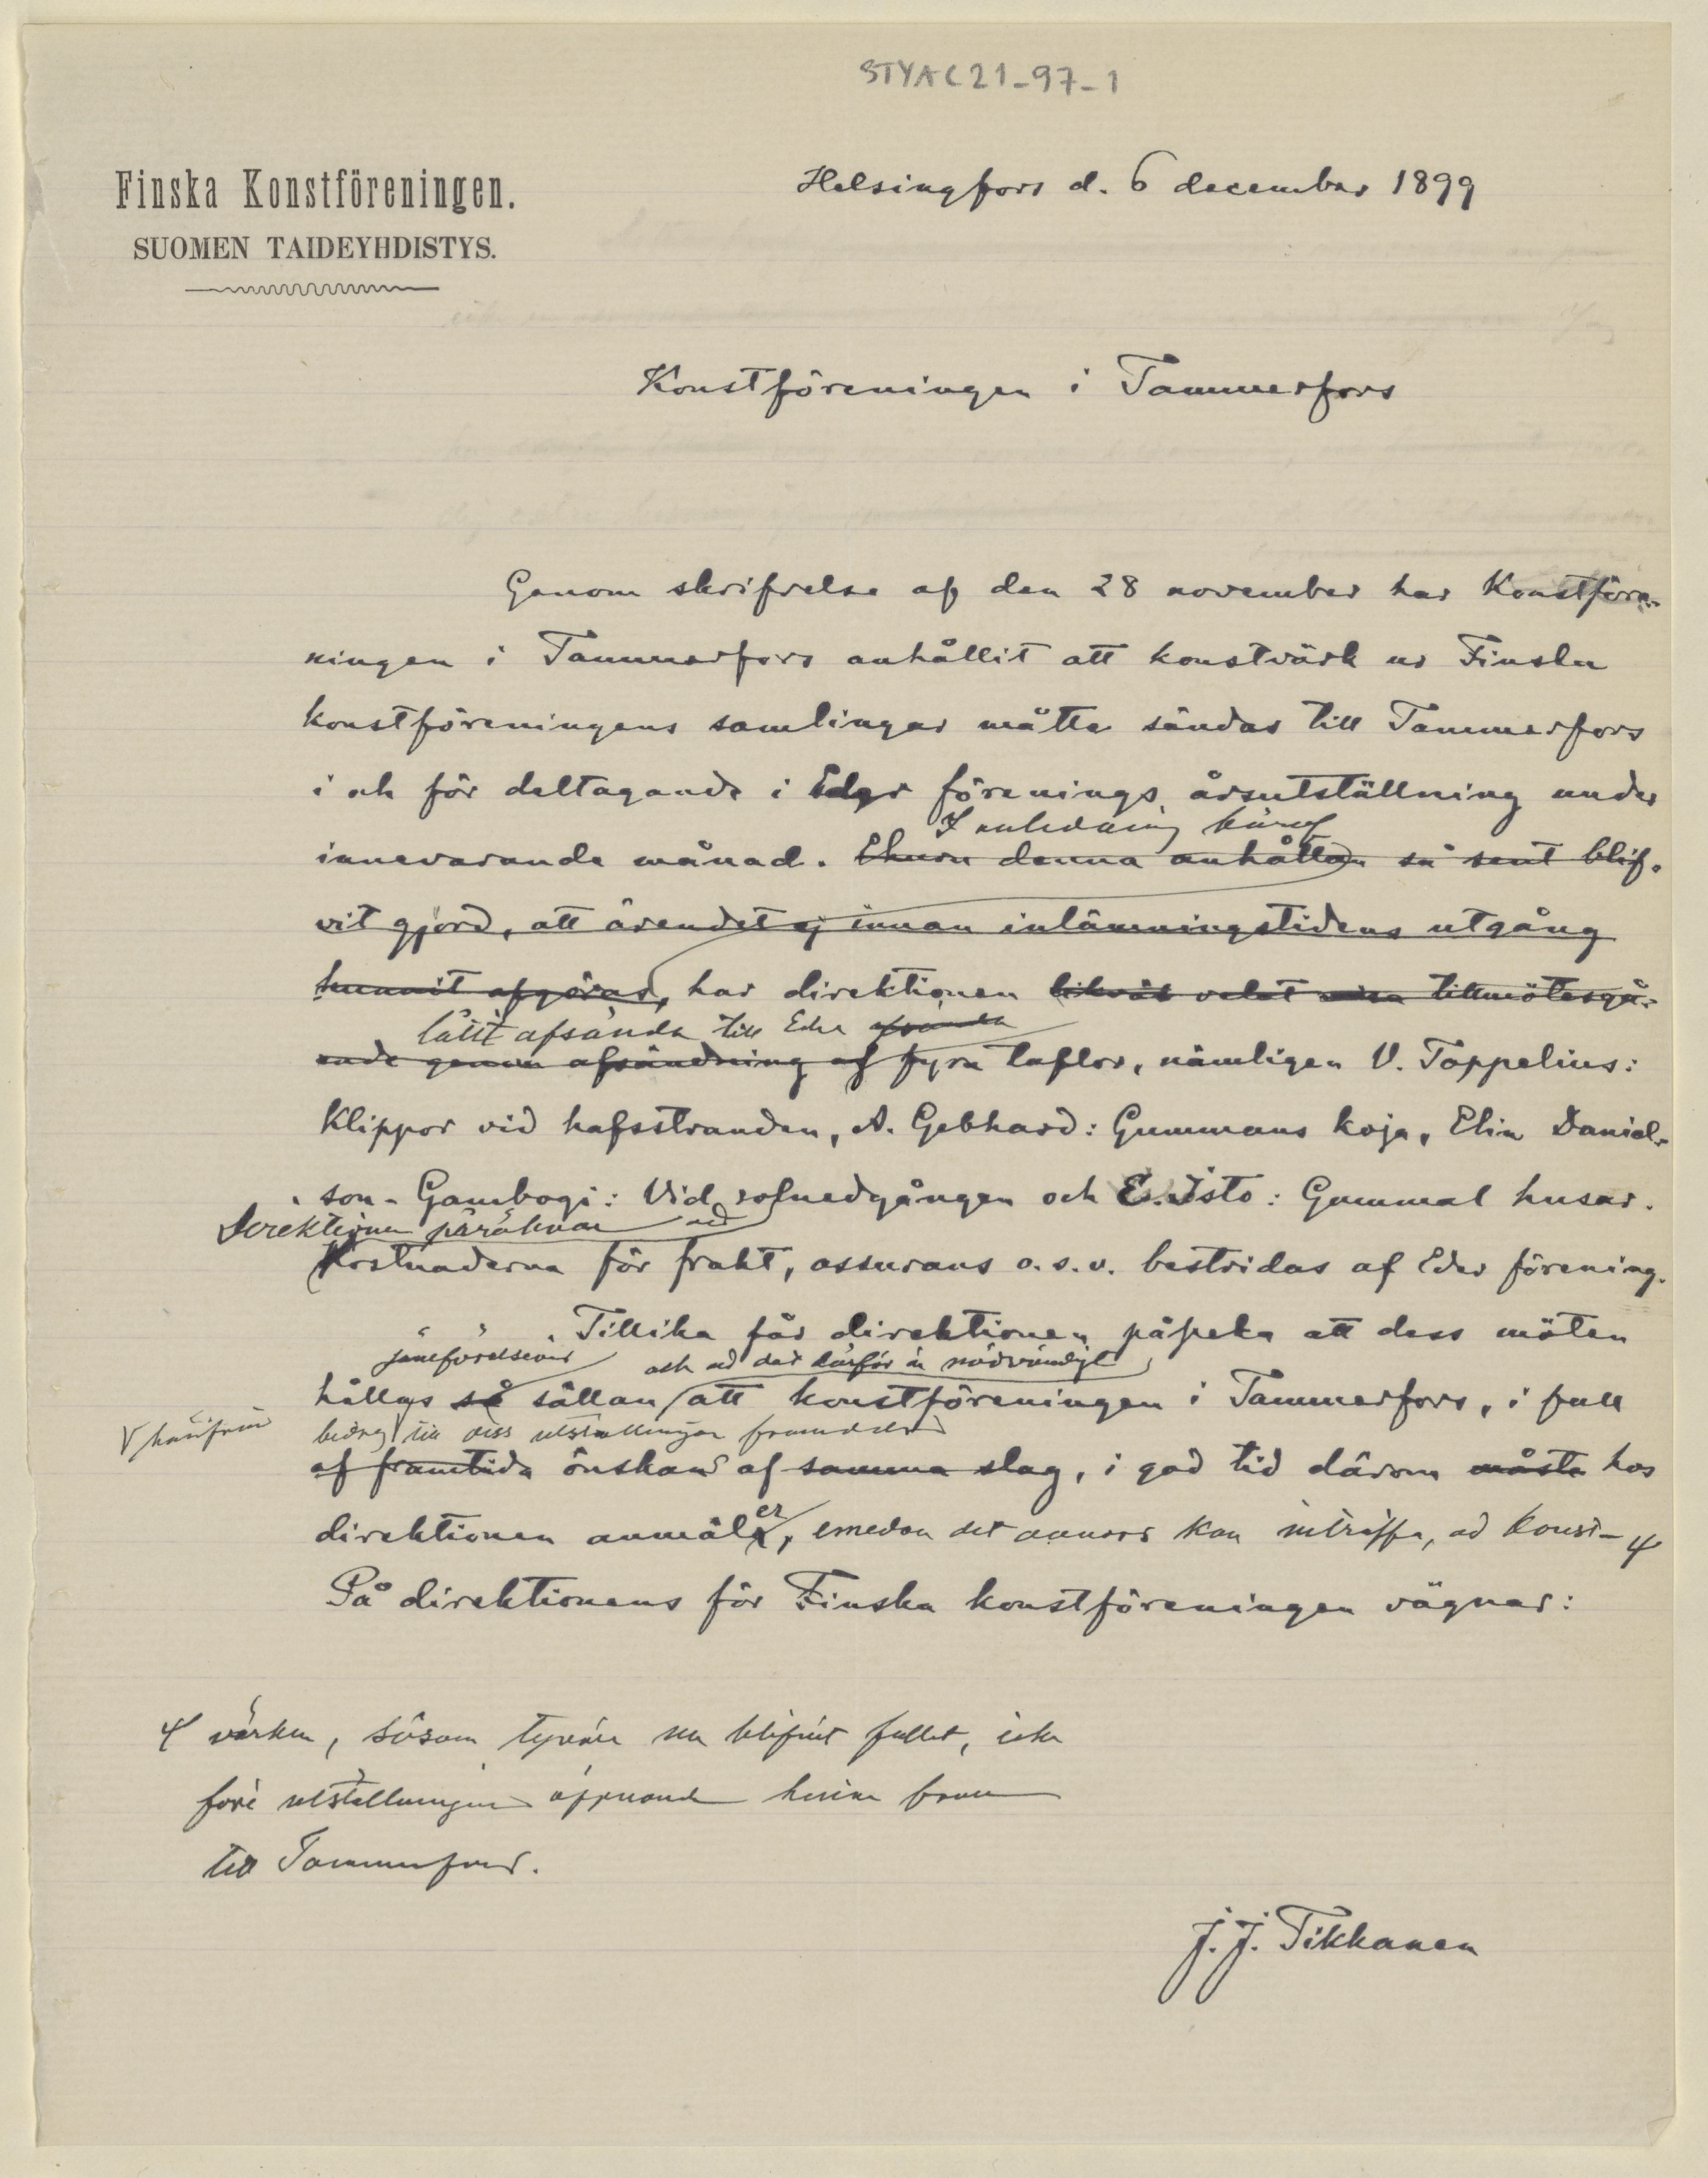 STYA C21-97-1
Finska Konstföreningen.
SUOMEN TAIDEYHDISTYS.
Helsingfors d. 6 december 1899
Konstföreningen i Tammerfors
Genom skrifvelse af den 28 november har Konstföre-
ningen i Tammerfors anhållit att konstvärk ur Finska
konstföreningens samlingar måtte sändas till Tammerfors
i och för deltagande i Eder förenings årsutställning under
I anledning häraf
innevarande månad. Ehuru denna anhållan så sent blif-
vit gjord, att ärendet ej innan inlämningstidens utgång
hunnit afgöras, har direktionen likväl velat visa tillmötesgå-
låtit afsända till Eder afsända
ende genom afsändning af fyra taflor, nämligen V. Toppelius:
Klippor vid hafsstranden, A. Gebhard: Gummans koja, Elin Daniel-
son-Gambogi: Vid solnedgången och E. Isto: Gammal husar.
Direktionen påräknar att
Kostnaderna för frakt, assurans o.s.v. bestridas af Eder förening.
Tillika får direktionen påpeka att dess möten
jämförelsevis och att det därför är nödvändigt
hållas så sällan att konstföreningen i Tammerfors, i fall
härifrån bidrag till dess utställningar framdeles
af framtida önskas af samma slag, i god tid därom måste hos
direktionen anmäler, emedan det annars kan inträffa, att konst-
På direktionens för Finska konstföreningen vägnar:
värken, såsom tyvärr nu blifvit fallet, icke
före utställningens öppnande hinna fram
till Tammerfors.
J. J. Tikkanen